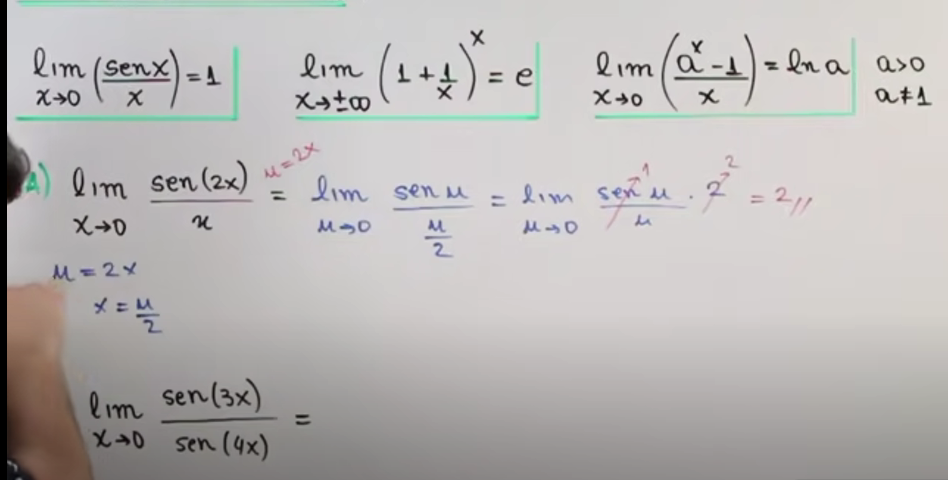 lim x→0 (sen x / x) = 1   lim x→±∞ (1 + 1/x)^x = e   lim x→0 (a^x - 1 / x) = ln a   a>0 a≠1
A) lim x→0 sen(2x) / x = u=2x lim u→0 sen u / (u/2) = lim u→0 sen u / u · 2 = 2// 1 2
u = 2x
x = u/2
lim x→0 sen(3x) / sen(4x) =